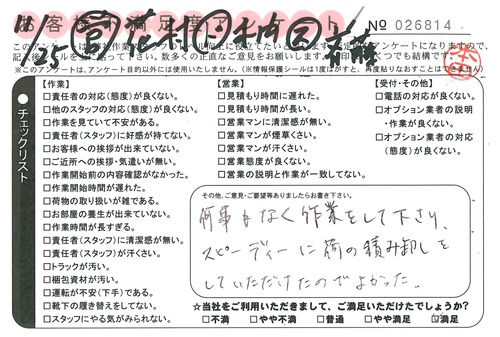 お客様満足度アンケート
№ 026814
1/25 営 花村 ト 千両 又 斉藤
このアンケートは弊社作業スタッフの
記入後シールを
※このアンケートは、アンケート目的以外には使用いたしません。（※情報保護シールは1度はがすと、再度貼りなおすことは
チェックリスト
【作業】
□責任者の対応（態度）が良くない。
□他のスタッフの対応（態度）が良くない。
□作業を見ていて不安がある。
□責任者（スタッフ）に好感が持てない。
□お客様への挨拶が出来ていない。
□ご近所への挨拶・気遣いが無い。
□作業開始前の内容確認がなかった。
□作業開始時間が遅れた。
□荷物の取り扱いが雑である。
□お部屋の養生が出来ていない。
□作業時間が長すぎる。
□責任者（スタッフ）に清潔感が無い。
□責任者（スタッフ）が汗くさい。
□トラックが汚い。
□梱包資材が汚い。
□運転が不安（下手）である。
□靴下の履き替えをしてない。
□スタッフにやる気がみられない。
【営業】
□見積もり時間に遅れた。
□見積もり時間が長い。
□営業マンに清潔感が無い。
□営業マンが煙草くさい。
□営業マンが汗くさい。
□営業態度が良くない。
□営業の説明と作業が一致してない。
【受付・その他】
□電話の対応が良くない。
□オプション業者の説明
・作業が良くない。
□オプション業者の対応
（態度）が良くない。
その他、ご意見・ご要望等ありましたらお書き下さい。
何事もなく作業をして下さり、
スピーディーに荷の積み卸しを
していただけたのでよかった。
☆当社をご利用いただきまして、ご満足いただけたでしょうか？
□不満 □やや不満 □普通 □やや満足 □満足